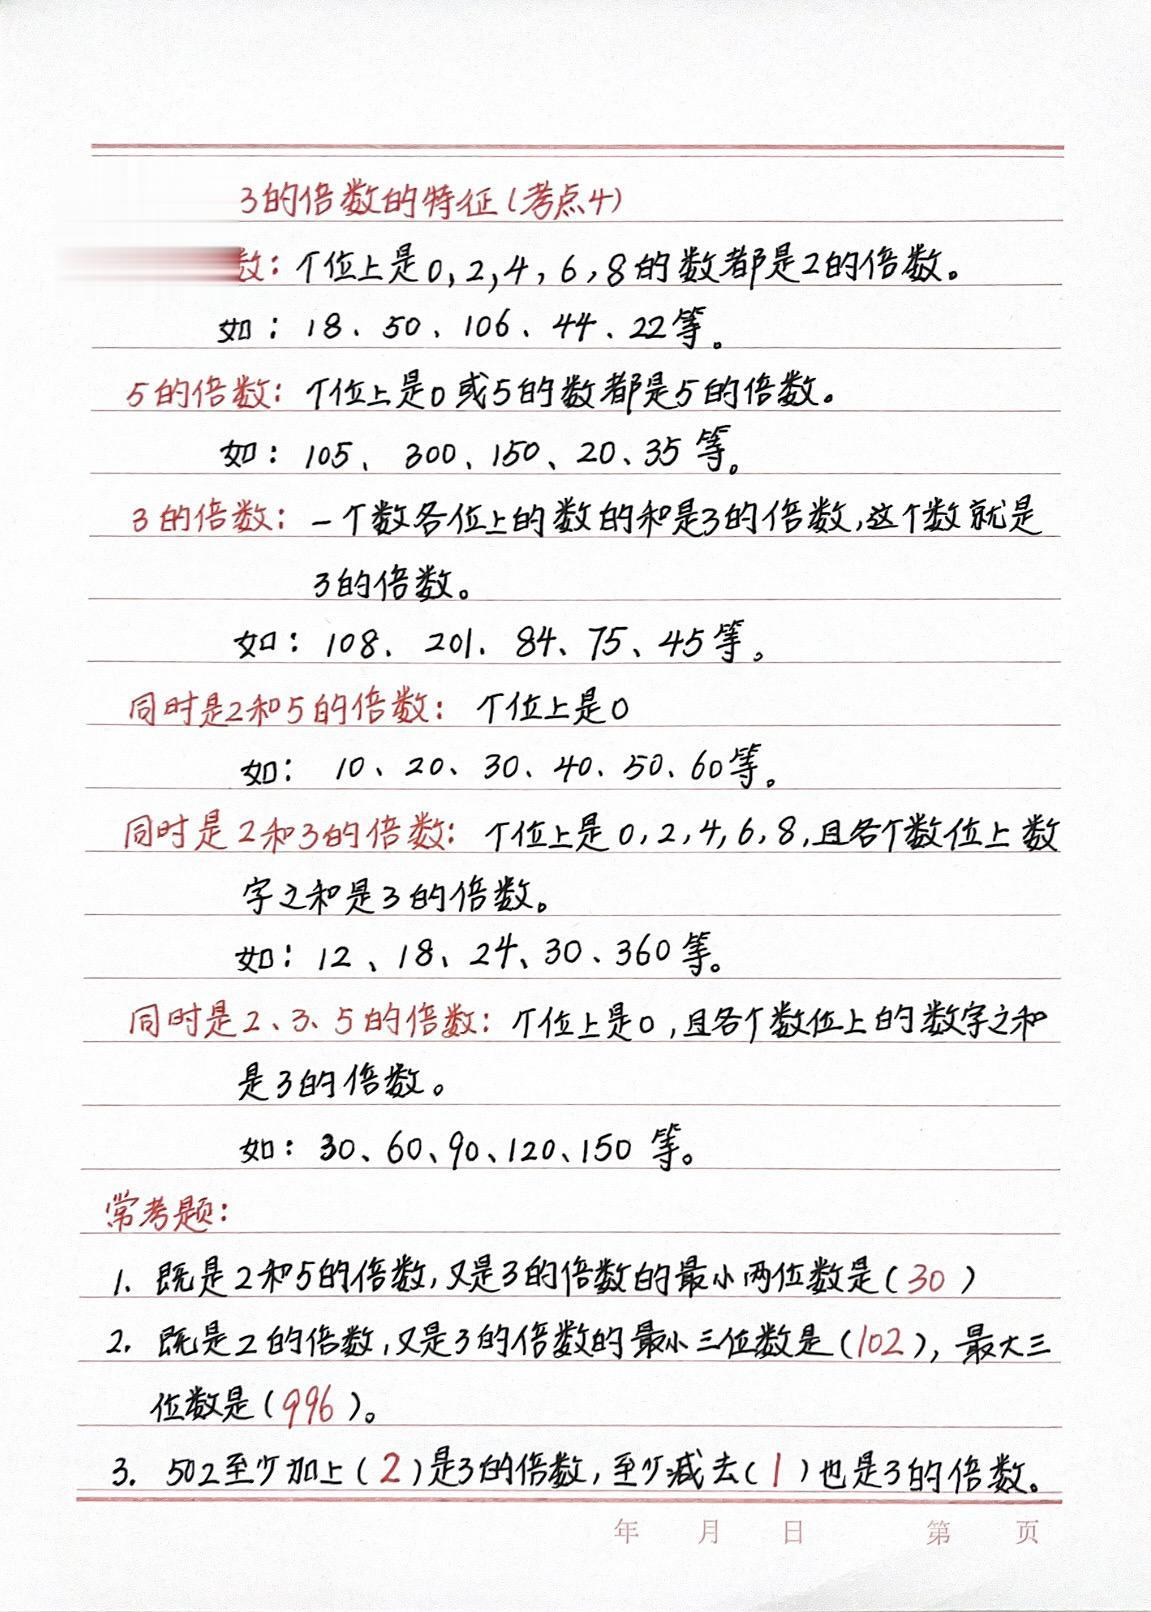 3的倍数的特征(考点4)
数：个位上是0,2,4,6,8的数都是2的倍数。
如：18、50、106、44、22等。
5的倍数：个位上是0或5的数都是5的倍数。
如：105、300、150、20、35等。
3的倍数：一个数各位上的数的和是3的倍数,这个数就是
3的倍数。
如：108、201、84、75、45等。
同时是2和5的倍数：个位上是0
如：10、20、30、40、50、60等。
同时是2和3的倍数：个位上是0,2,4,6,8,且各个数位上数
字之和是3的倍数。
如：12、18、24、30、360等。
同时是2、3、5的倍数：个位上是0,且各个数位上的数字之和
是3的倍数。
如：30、60、90、120、150等。
常考题：
1. 既是2和5的倍数,又是3的倍数的最小两位数是(30)
2. 既是2的倍数,又是3的倍数的最小三位数是(102),最大三
位数是(996)。
3. 502至少加上(2)是3的倍数,至少减去(1)也是3的倍数。
年 月 日 第 页